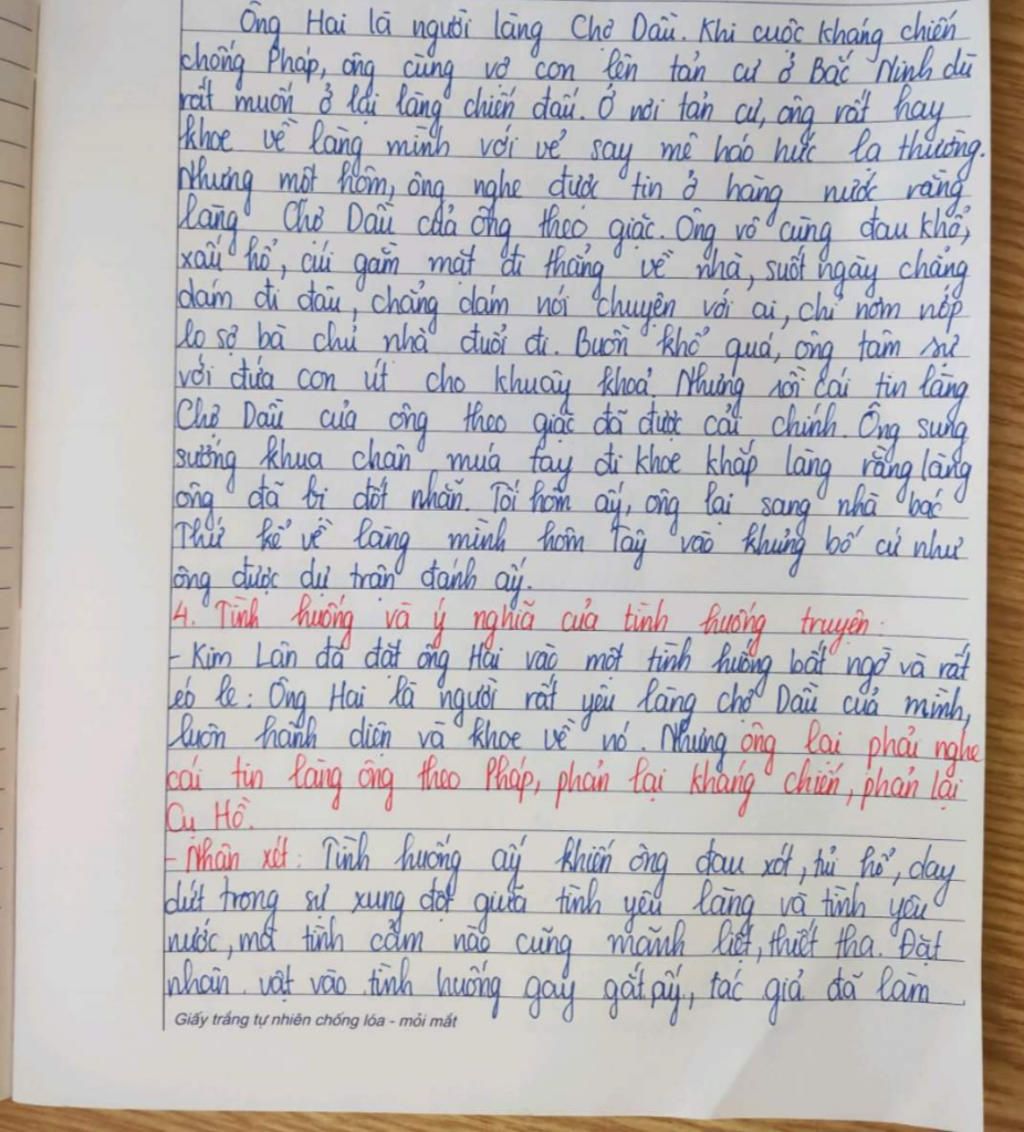 Ông Hai là người làng Chợ Dầu. Khi cuộc kháng chiến
chống Pháp, ông cùng vợ con lên tản cư ở Bắc Ninh dù
rất muốn ở lại làng chiến đấu. Ở nơi tản cư, ông rất hay
khoe về làng mình với vẻ say mê háo hức lạ thường.
Nhưng một hôm, ông nghe được tin ở hàng nước rằng
làng Chợ Dầu của ông theo giặc. Ông vô cùng đau khổ,
xấu hổ, cúi gằm mặt đi thẳng về nhà, suốt ngày chẳng
dám đi đâu, chẳng dám nói chuyện với ai, chỉ nơm nớp
lo sợ bà chủ nhà đuổi đi. Buồn khổ quá, ông tâm sự
với đứa con út cho khuây khoả. Nhưng rồi cái tin làng
Chợ Dầu của ông theo giặc đã được cải chính. Ông sung
sướng khua chân múa tay đi khoe khắp làng rằng làng
ông đã bị đốt nhẵn. Tối hôm ấy, ông lại sang nhà bác
Thứ kể về làng mình hôm Tây vào khủng bố cứ như
ông được dự trận đánh ấy.
4. Tình huống và ý nghĩa của tình huống truyện:
- Kim Lân đã đặt ông Hai vào một tình huống bất ngờ và rất
éo le: Ông Hai là người rất yêu làng chợ Dầu của mình,
luôn hãnh diện và khoe về nó. Nhưng ông lại phải nghe
cái tin làng ông theo Pháp, phản lại kháng chiến, phản lại
Cụ Hồ.
- Nhận xét: Tình huống ấy khiến ông đau xót, tủi hổ, day
dứt trong sự xung đột giữa tình yêu làng và tình yêu
nước, mà tình cảm nào cũng mãnh liệt, thiết tha. Đặt
nhân vật vào tình huống gay gắt ấy, tác giả đã làm
Giấy trắng tự nhiên chống lóa - mỏi mắt